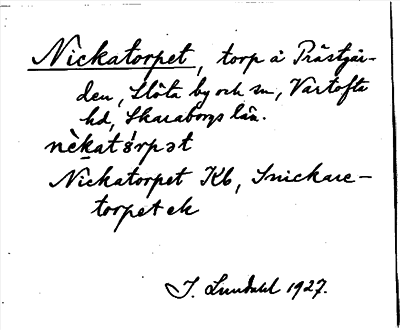 Nickatorpet, torp å Prästgår-
den, Slöta by och sn, Vartofta
hd, Skaraborgs län.
nèkatórpət
Nickatorpet Kb, Snickare-
torpet ek
I. Lundahl 1927.